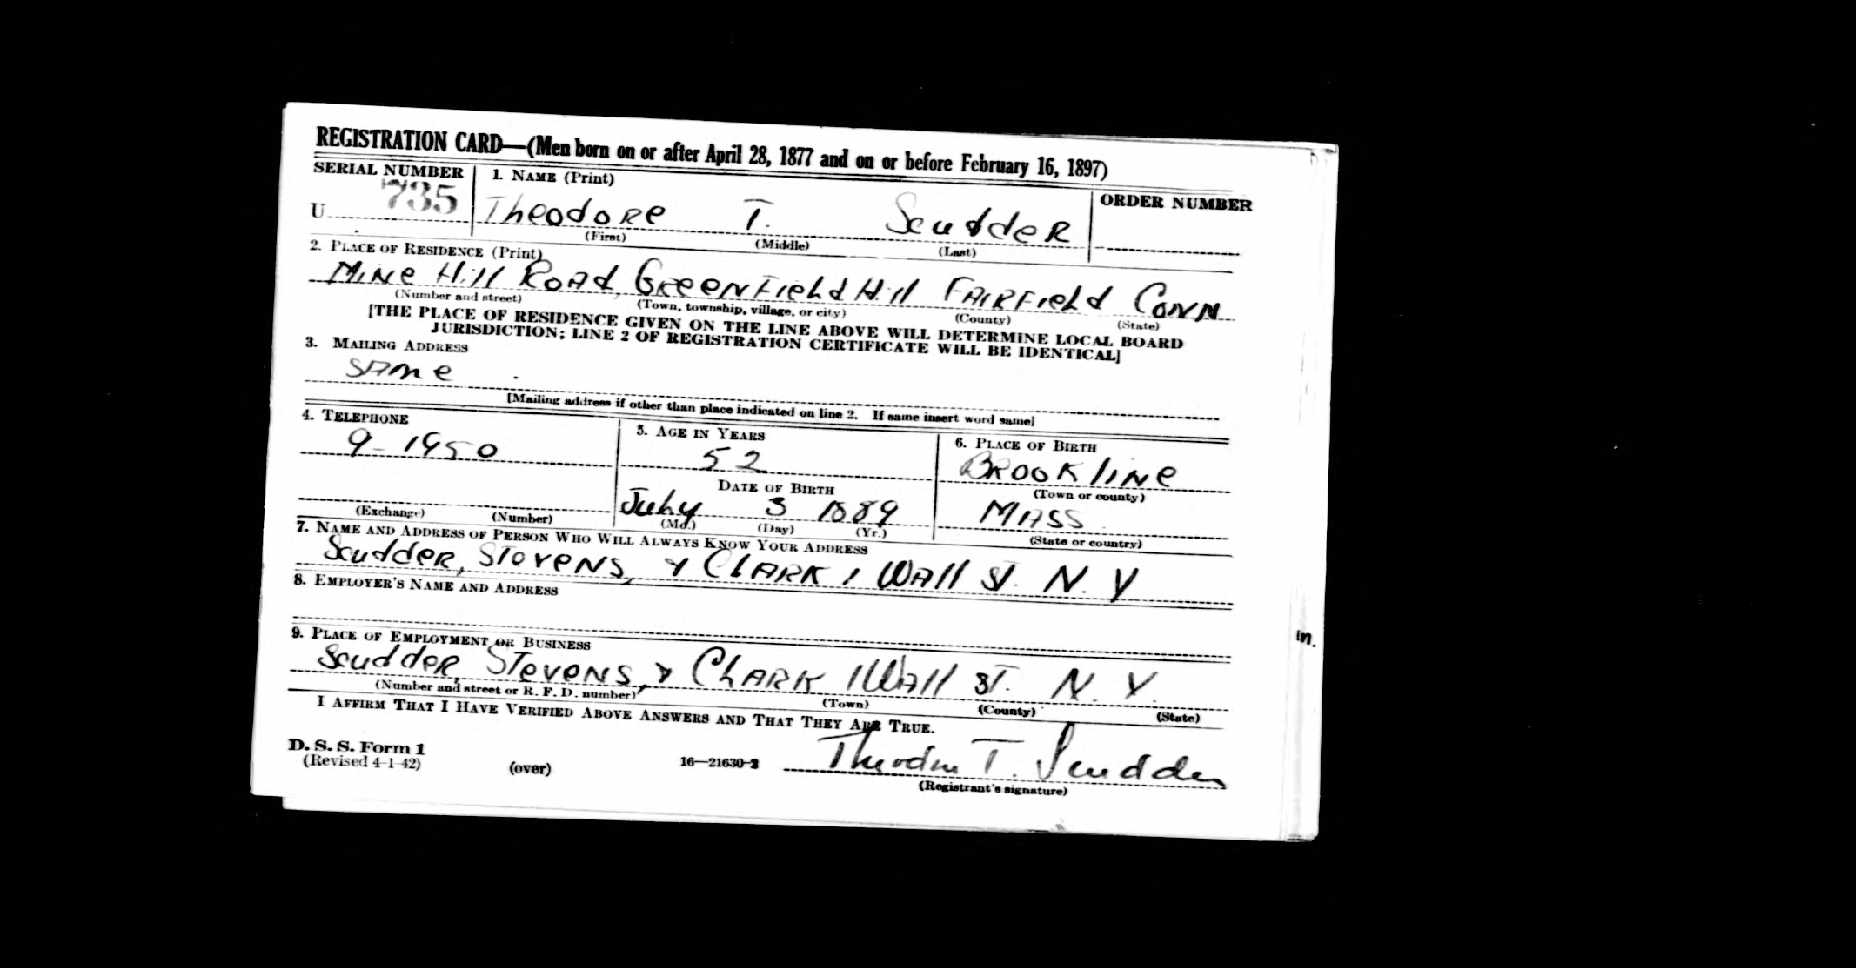 REGISTRATION CARD—(Men born on or after April 28, 1877 and on or before February 16, 1897)
SERIAL NUMBER
1. NAME (Print)
ORDER NUMBER
U 735
Theodore T. Scudder
(First) (Middle) (Last)
2. PLACE OF RESIDENCE (Print)
Mine Hill Road, Greenfield Hill Fairfield Conn
(Number and street) (Town, township, village, or city) (County) (State)
[THE PLACE OF RESIDENCE GIVEN ON THE LINE ABOVE WILL DETERMINE LOCAL BOARD
JURISDICTION; LINE 2 OF REGISTRATION CERTIFICATE WILL BE IDENTICAL]
3. MAILING ADDRESS
same
[Mailing address if other than place indicated on line 2. If same insert word same]
4. TELEPHONE
5. AGE IN YEARS
6. PLACE OF BIRTH
9-1950
52
Brookline
(Town or county)
DATE OF BIRTH
July 3 1889
Mass
(Exchange) (Number)
(Mo.) (Day) (Yr.)
(State or country)
7. NAME AND ADDRESS OF PERSON WHO WILL ALWAYS KNOW YOUR ADDRESS
Scudder, Stevens, & Clark 1 Wall St. N. Y
8. EMPLOYER'S NAME AND ADDRESS
9. PLACE OF EMPLOYMENT OR BUSINESS
Scudder, Stevens, & Clark 1 Wall St. N. Y.
(Number and street or R. F. D. number) (Town) (County) (State)
I AFFIRM THAT I HAVE VERIFIED ABOVE ANSWERS AND THAT THEY ARE TRUE.
D. S. S. Form 1
(Revised 4-1-42)
(over)
16—21630-2
Theodore T. Scudder
(Registrant's signature)
in.